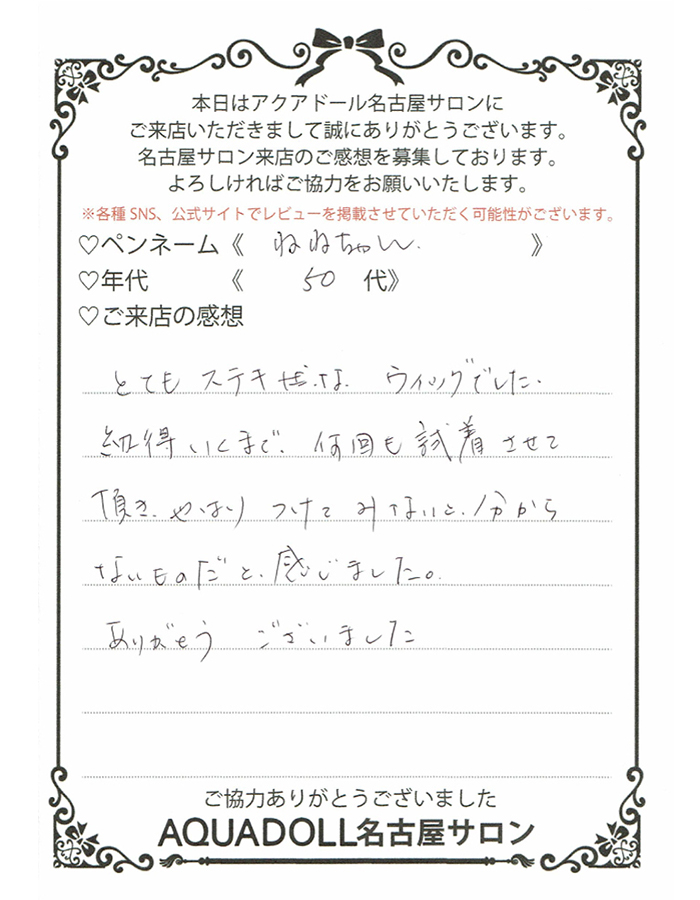 本日はアクアドール名古屋サロンに
ご来店いただきまして誠にありがとうございます。
名古屋サロン来店のご感想を募集しております。
よろしければご協力をお願いいたします。
※各種SNS、公式サイトでレビューを掲載させていただく可能性がございます。
♡ペンネーム《 ねねちゃん. 》
♡年代 《 50 代》
♡ご来店の感想
とても ステキ な ウィッグでした.
納得いくまで. 何回も試着させて
頂き. やはり つけて みないと. 分から
ないものだと. 感じました。
ありがとう ございました
ご協力ありがとうございました
AQUADOLL名古屋サロン